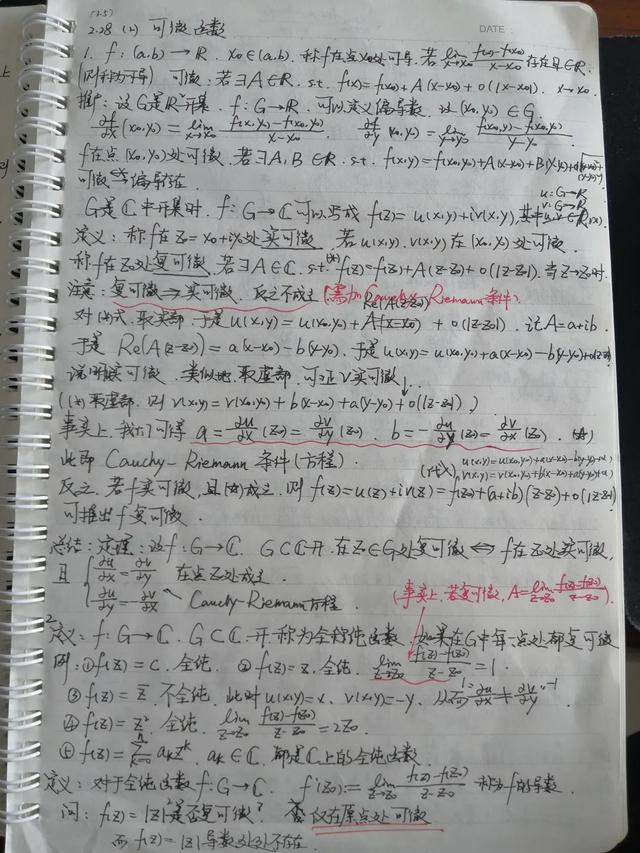 DATE
2.28 (2) 可微函数
1. f: (a,b) → R. x₀∈(a,b). 称f在点x₀处可导, 若 lim_{x→x₀} (f(x)-f(x₀))/(x-x₀) 存在且∈R.
可微: 若∃A∈R. s.t. f(x)=f(x₀)+A(x-x₀)+o(|x-x₀|). x→x₀.
推广: 设G是R²开集. f: G→R. 可以定义偏导数. 设(x₀,y₀)∈G.
∂f/∂x (x₀,y₀) = lim_{x→x₀} (f(x,y₀)-f(x₀,y₀))/(x-x₀). ∂f/∂y (x₀,y₀) = lim_{y→y₀} (f(x₀,y)-f(x₀,y₀))/(y-y₀).
f在点(x₀,y₀)处可微. 若∃A,B∈R. s.t. f(x,y)=f(x₀,y₀)+A(x-x₀)+B(y-y₀)+o(
可微 偏导存在.
u: G→R
v: G→R
G是C中开集时, f: G→C可以写成 f(z)=u(x,y)+iv(x,y), 其中u,v
定义: 称f在z₀=x₀+iy₀处实可微. 若u(x,y), v(x,y)在(x₀,y₀)处可微.
称f在z₀处复可微. 若∃A∈C. s.t. (*) f(z)=f(z₀)+A(z-z₀)+o(|z-z₀|). 当z→z₀时.
注意: 复可微⟹实可微. 反之不成立 (需加Cauchy-Riemann条件)
Re(A(z-z₀))
对(*)式. 取实部. 于是u(x,y)=u(x₀,y₀)+ +o(|z-z₀|). 记A=a+ib.
于是 Re(A(z-z₀))=a(x-x₀)-b(y-y₀). 于是u(x,y)=u(x₀,y₀)+a(x-x₀)-b(y-y₀)+o(|z-z₀|)
说明实可微. 类似地. 取虚部. 可证v实可微
((*)取虚部. 则v(x,y)=v(x₀,y₀)+b(x-x₀)+a(y-y₀)+o(|z-z₀|))
事实上, 我们可得 a=∂u/∂x (z₀)=∂v/∂y (z₀). b=-∂u/∂y (z₀)=∂v/∂x (z₀).
此即 Cauchy-Riemann 条件(方程).
(代入) u(x,y)=u(x₀,y₀)+a(x-x₀)-b(y-y₀)+o()
v(x,y)=v(x₀,y₀)+b(x-x₀)+a(y-y₀)+o()
反之. 若f实可微, 且 成立. 则 f(z)=u(z)+iv(z)=f(z₀)+(a+ib)(z-z₀)+o(|z-z₀|)
可推出f复可微.
总结: 定理: 设f: G→C. G⊂C开. 在z₀∈G处复可微 ⟺ f在z₀处实可微,
且 { ∂u/∂x=∂v/∂y 在点z₀处成立.
∂u/∂y=-∂v/∂x Cauchy-Riemann方程.
(事实上, 若复可微, A=lim_{z→z₀} (f(z)-f(z₀))/(z-z₀).)
2. 定义: f: G→C. G⊂C开. 称为全纯函数. 如果在G中每一点处都复可微
例: ① f(z)=c. 全纯. ② f(z)=z. 全纯. lim_{z→z₀} (f(z)-f(z₀))/(z-z₀)=1.
③ f(z)=z̄ 不全纯. 此时u(x,y)=x, v(x,y)=-y. 从而 1=∂u/∂x≠∂v/∂y=-1
④ f(z)=z². 全纯. lim_{z→z₀} (f(z)-f(z₀))/(z-z₀)=2z₀.
⑤ f(z)=∑_{k=0}^{n} aₖzᵏ. aₖ∈C. 都是C上的全纯函数.
定义: 对于全纯函数f: G→C. f'(z₀):=lim_{z→z₀} (f(z)-f(z₀))/(z-z₀) 称为f的导数.
问: f(z)=|z|²是否复可微? 否 仅在原点处可微
而 f(z)=|z|导数处处不存在.